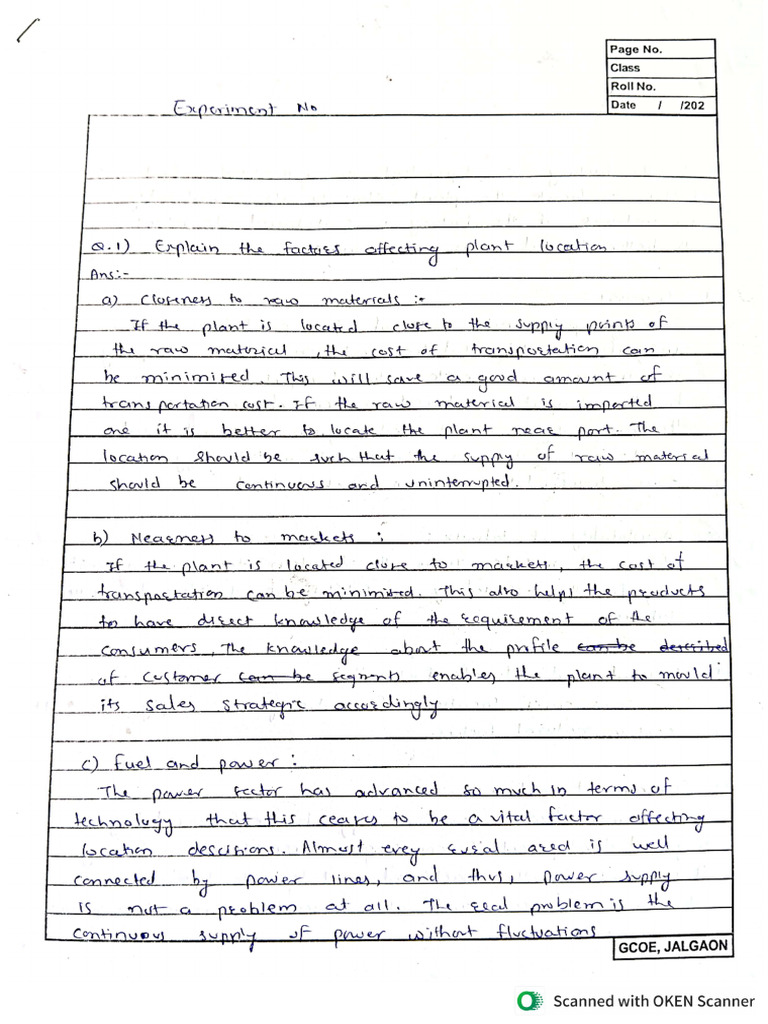 Page No.
Class
Roll No.
Date / /202
Experiment No
Q.1) Explain the factors affecting plant location
Ans:-
a) Closeness to raw materials :-
If the plant is located close to the supply points of
the raw material , the cost of transportation can
be minimized. This will save a good amount of
transportation cost. If the raw material is imported
one it is better to locate the plant near port. The
location should be such that the supply of raw material
should be continuous and uninterrupted.
b) Nearness to markets :
If the plant is located close to markets, the cost of
transportation can be minimized. This also helps the products
to have direct knowledge of the requirement of the
consumers, The knowledge about the profile can be described
of customer can be segments enables the plant to mould
its sales strategic accordingly
c) Fuel and power :
The power sector has advanced so much in terms of
technology that this ceases to be a vital factor affecting
location descisions. Almost evey rural ared is well
connected by power lines, and thus, power supply
is not a problem at all. The real problem is the
continuous supply of power without fluctuations
GCOE, JALGAON
Scanned with OKEN Scanner